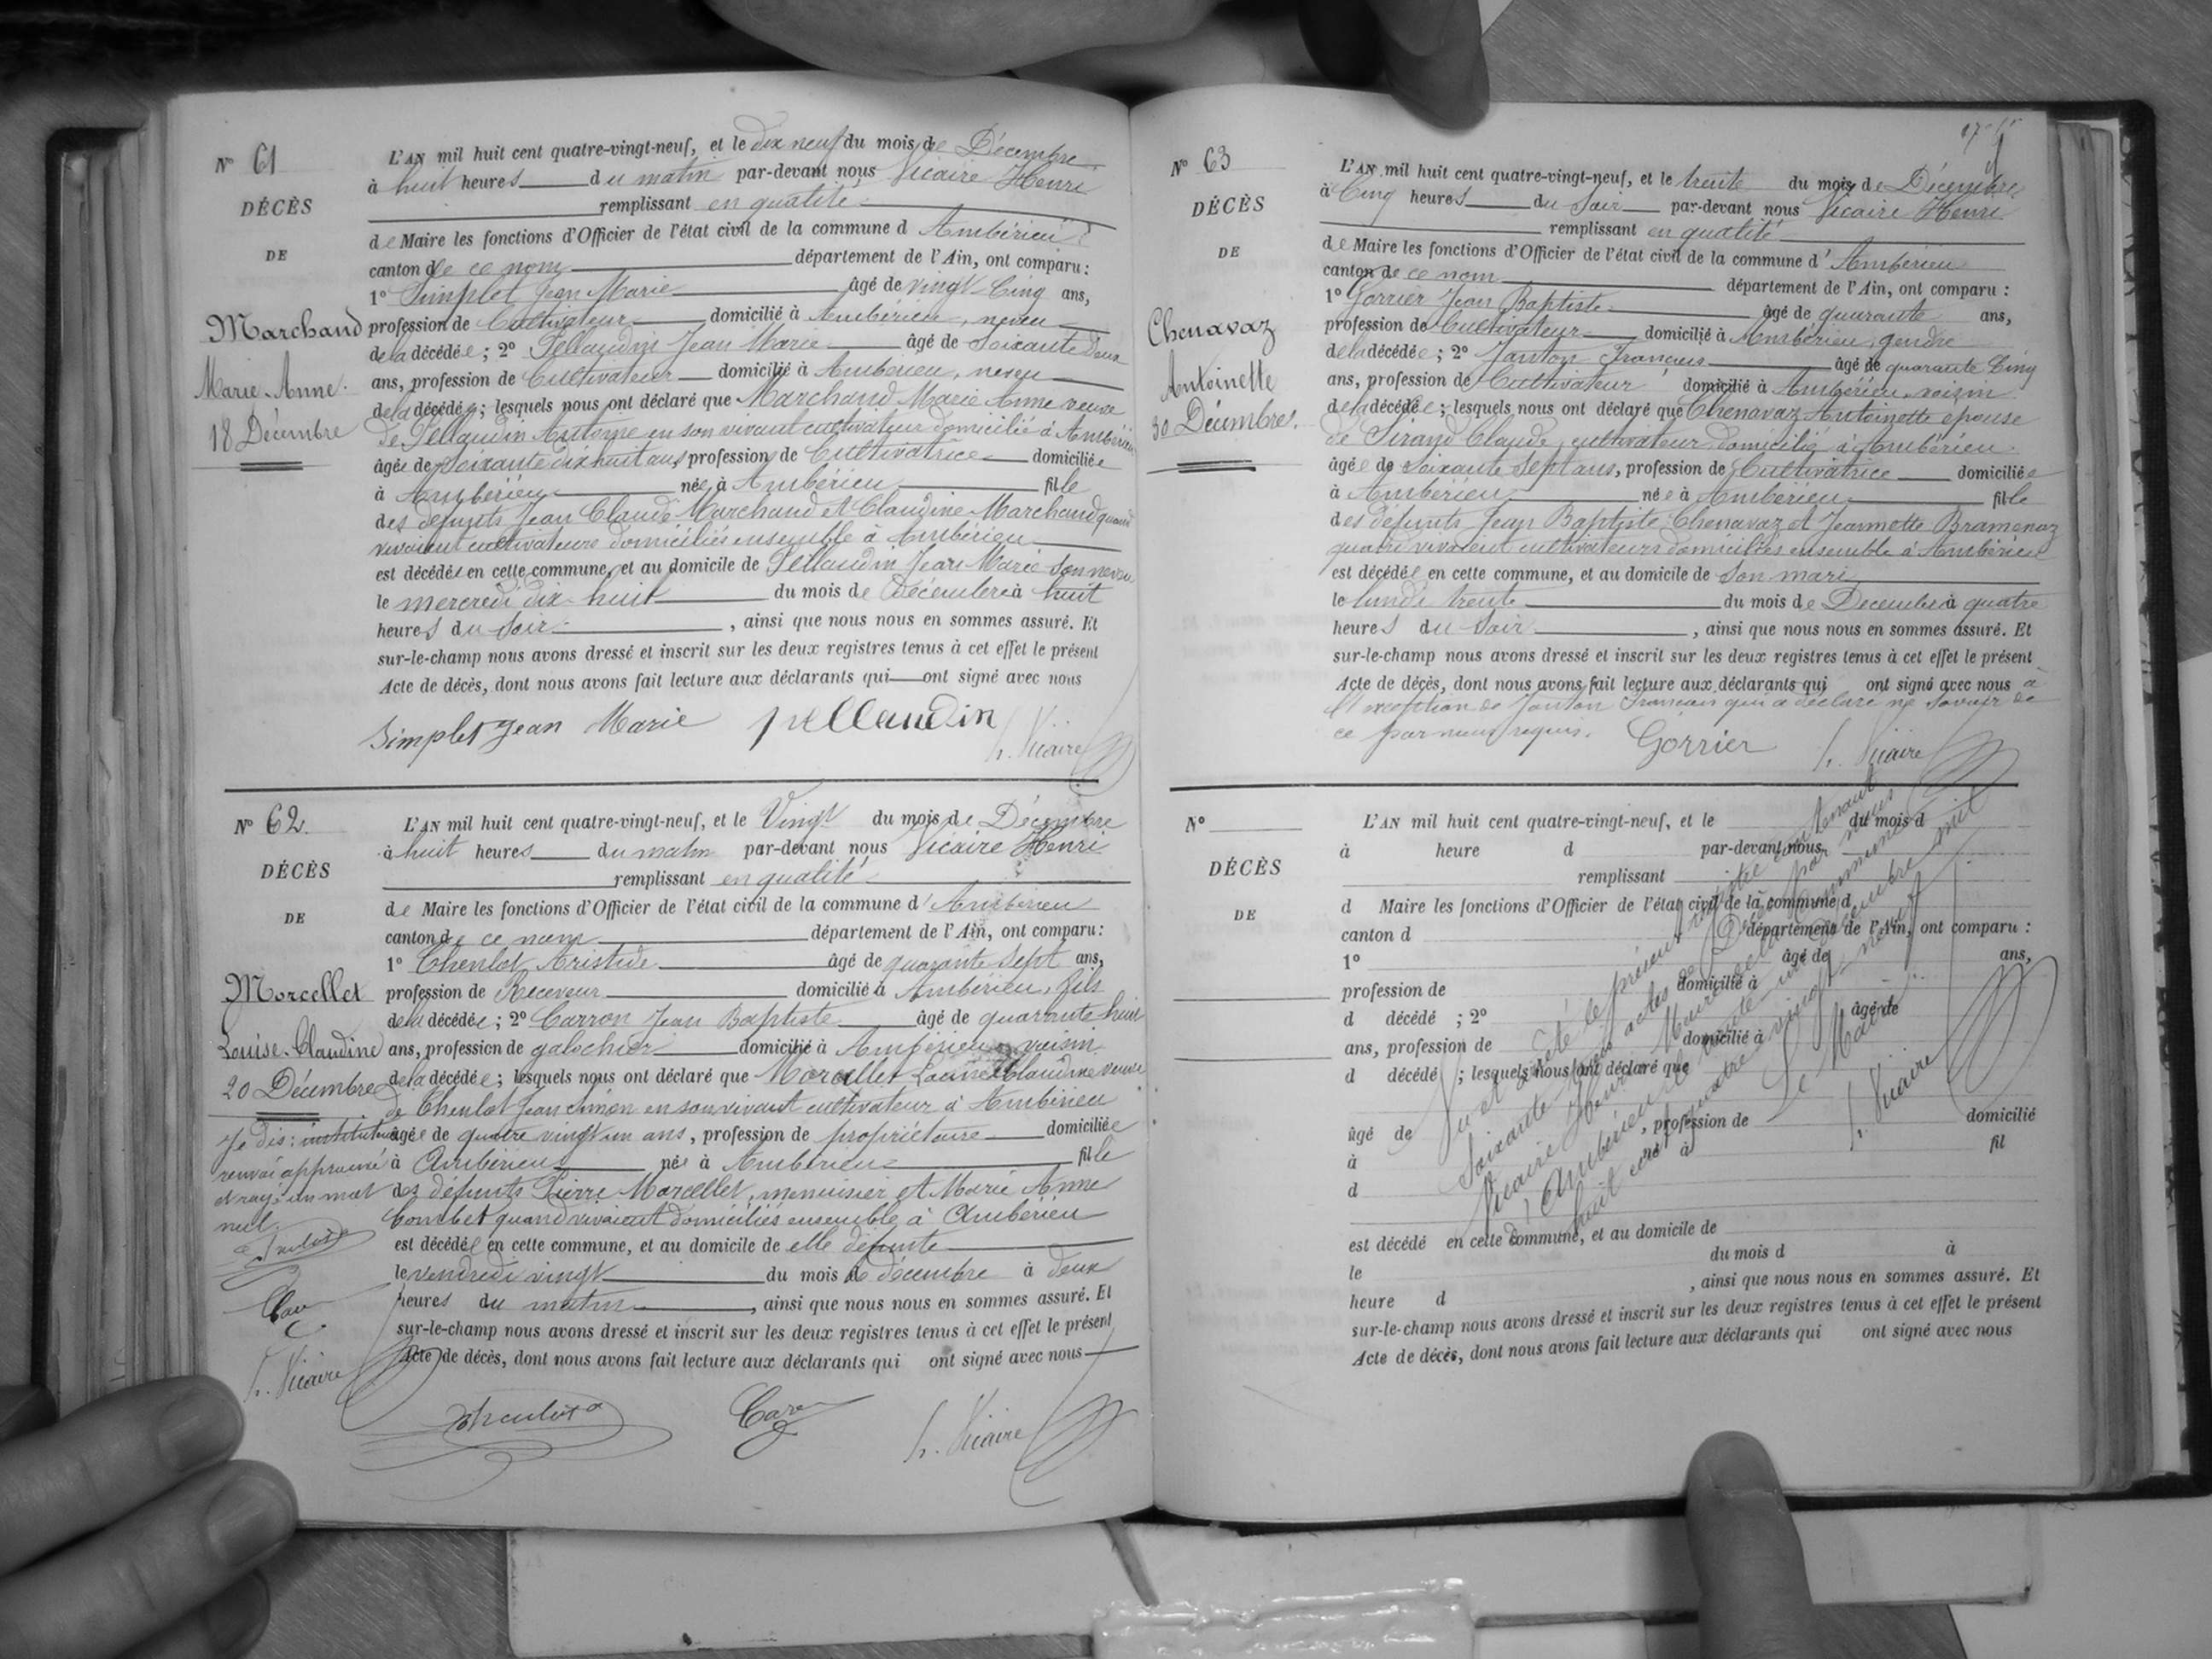 N° 61
DÉCÈS
DE
Marchand
Marie Anne
18 Décembre
L'AN mil huit cent quatre-vingt-neuf, et le dix neuf du mois de Décembre
à huit heures du matin par-devant nous Vicaire Henri
remplissant en qualité
de Maire les fonctions d'Officier de l'état civil de la commune d Ambérieu
canton de ce nom département de l'Ain, ont comparu :
1° Simplet Jean Marie âgé de vingt-Cinq ans,
profession de Cultivateur domicilié à Ambérieu, neveu
de la décédée ; 2° Pellaudin Jean Marie âgé de Soixante Deux
ans, profession de Cultivateur domicilié à Ambérieu, neveu
de la décédée ; lesquels nous ont déclaré que Marchand Marie Anne veuve
de Pellaudin Antoine en son vivant cultivateur domicilié à Ambérieu
âgée de Soixante dix huit ans, profession de Cultivatrice domiciliée
à Ambérieu née à Ambérieu fille
des défunts Jean Claude Marchand et Claudine Marchand quand
vivaient cultivateurs domiciliés ensemble à Ambérieu
est décédée en cette commune, et au domicile de Pellaudin Jean Marie Son neveu
le mercredi dix-huit du mois de Décembre à huit
heures du Soir , ainsi que nous nous en sommes assuré. Et
sur-le-champ nous avons dressé et inscrit sur les deux registres tenus à cet effet le présent
Acte de décès, dont nous avons fait lecture aux déclarants qui ont signé avec nous
Simplet Jean Marie pellaudin h. Vicaire
N° 62.
DÉCÈS
DE
Morcellet
Louise-Claudine
20 Décembre
Je dis :
renvoi approuvé
et rayé un mot
nul.
Car
h. Vicaire
L'AN mil huit cent quatre-vingt-neuf, et le Vingt du mois de Décembre
à huit heures du matin par-devant nous Vicaire Henri
remplissant en qualité
de Maire les fonctions d'Officier de l'état civil de la commune d'Ambérieu
canton de ce nom département de l'Ain, ont comparu :
1° Chenlot Aristide âgé de quarante Sept ans,
profession de Receveur domicilié à Ambérieu, fils
de la décédée ; 2° Carron Jean Baptiste âgé de quarante huit
ans, profession de galochier domicilié à Ambérieu, voisin
de la décédée ; lesquels nous ont déclaré que Morcellet Louise Claudine veuve
de Chenlot Jean Simon en son vivant cultivateur à Ambérieu
âgée de quatre vingt un ans, profession de propriétaire domiciliée
à Ambérieu née à Ambérieu fille
des défunts Pierre Morcellet, menuisier et Marie Anne
Combet quand vivaient domiciliés ensemble à Ambérieu
est décédée en cette commune, et au domicile de elle défunte
le vendredi vingt du mois de décembre à deux
heures du matin , ainsi que nous nous en sommes assuré. Et
sur-le-champ nous avons dressé et inscrit sur les deux registres tenus à cet effet le présent
Acte de décès, dont nous avons fait lecture aux déclarants qui ont signé avec nous
Car h. Vicaire
N° 63
DÉCÈS
DE
Chenavaz
Antoinette
30 Décembre.
L'AN mil huit cent quatre-vingt-neuf, et le trente du mois de Décembre
à Cinq heures du Soir par-devant nous Vicaire Henri
remplissant en qualité
de Maire les fonctions d'Officier de l'état civil de la commune d'Ambérieu
canton de ce nom département de l'Ain, ont comparu :
1° Gorrier Jean Baptiste âgé de quarante ans,
profession de Cultivateur domicilié à Ambérieu, gendre
de la décédée ; 2° Janton Francois âgé de quarante Cinq
ans, profession de Cultivateur domicilié à Ambérieu, voisin
de la décédée ; lesquels nous ont déclaré que Chenavaz Antoinette epouse
de Sirand Claude, cultivateur domicilié à Ambérieu
âgée de Soixante Sept ans, profession de Cultivatrice domiciliée
à Ambérieu née à Ambérieu fille
des défunts Jean Baptiste Chenavaz et Jeannette Bramenaz
quand vivaient cultivateurs domiciliés ensemble à Ambérieu
est décédée en cette commune, et au domicile de Son mari
le lundi trente du mois de Décembre à quatre
heures du Soir , ainsi que nous nous en sommes assuré. Et
sur-le-champ nous avons dressé et inscrit sur les deux registres tenus à cet effet le présent
Acte de décès, dont nous avons fait lecture aux déclarants qui ont signé avec nous a
l'exception de Janton Francois qui a déclaré ne Savoir de
ce par nous requis. Gorrier h. Vicaire
N°
DÉCÈS
DE
L'AN mil huit cent quatre-vingt-neuf, et le du mois d
à heure d par-devant nous
remplissant
d Maire les fonctions d'Officier de l'état civil de la commune d
canton d département de l'Ain, ont comparu :
1° âgé de ans,
profession de domicilié à
d décédé ; 2° âgé de
ans, profession de domicilié à
d décédé ; lesquels nous ont déclaré que
âgé de , profession de domicilié
à né à fil
d
est décédé en cette commune, et au domicile de
le du mois d à
heure d , ainsi que nous nous en sommes assuré. Et
sur-le-champ nous avons dressé et inscrit sur les deux registres tenus à cet effet le présent
Acte de décès, dont nous avons fait lecture aux déclarants qui ont signé avec nous
Vu et arrêté le présent registre contenant
Soixante trois actes de Décès par nous
Vicaire Henri Maire de la Commune
d'Ambérieu le trente-un Décembre mil
huit cent quatre vingt-neuf
Le Maire
h. Vicaire